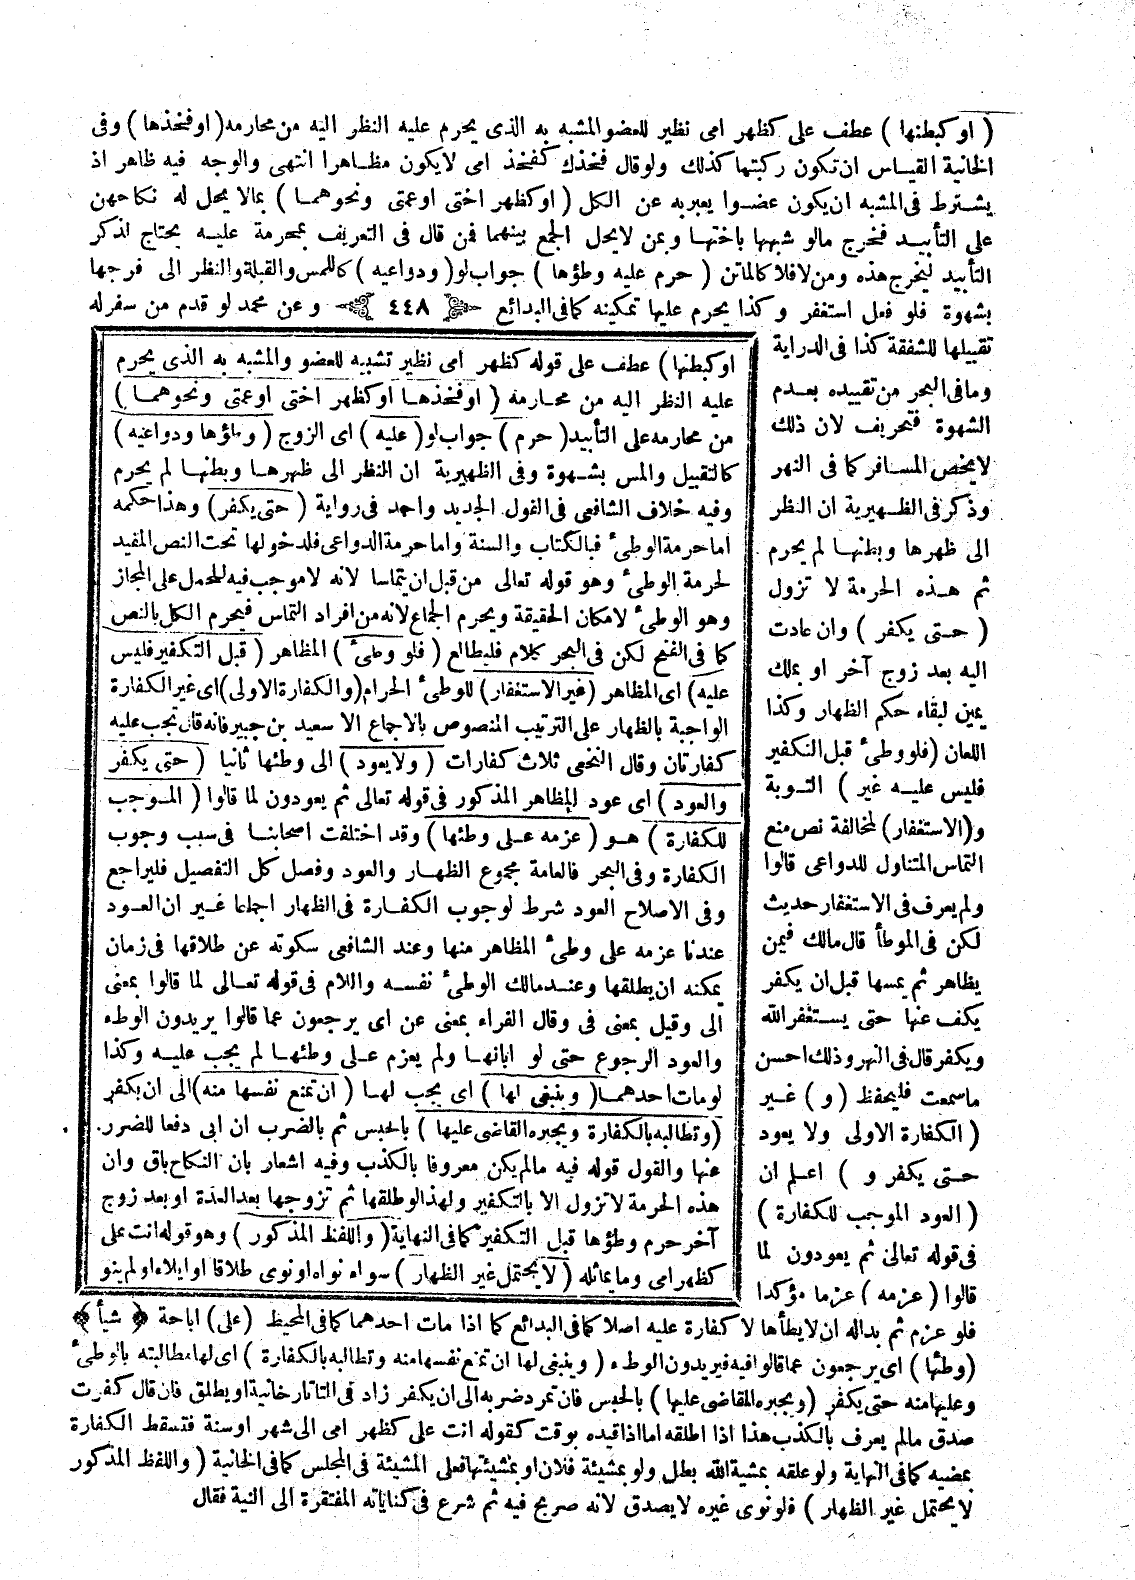 ( او كبطنها ) عطف على كظهر امى نظير للعضو المشبه به الذى يحرم عليه النظر اليه من محارمه ( او فخذها ) وفى
الخانية القياس ان تكون ركبتها كذلك ولو قال فخذك كفخذ امى لا يكون مظاهرا انتهى والوجه فيه ظاهر اذ
يشترط فى المشبه ان يكون عضوا يعبر به عن الكل ( او كظهر اختى او عمتى ونحوهما ) بمالا يحل له نكاحهن
على التأبيد فخرج مالو شبهها باختها وبمن لا يحل الجمع بينهما فمن قال فى التعريف بمحرمة عليه يحتاج لذكر
التأبيد ليخرج هذه ومن لا فلا كالماتن ( حرم عليه وطؤها ) جواب لو ( ودواعيه ) كاللمس والقبلة والنظر الى فرجها
بشهوة فلو فعل استغفر وكذا يحرم عليها تمكينه كما فى البدائع ﴿ ٤٤٨ ﴾ وعن محمد لو قدم من سفر له
تقبيلها للشفقة كذا فى الدراية
وما فى البحر من تقييده بعدم
الشهوة فتحريف لان ذلك
لا يخص المسافر كما فى النهر
وذكر فى الظهيرية ان النظر
الى ظهرها وبطنها لم يحرم
ثم هذه الحرمة لا تزول
( حتى يكفر ) وان عادت
اليه بعد زوج آخر او بملك
يمين لبقاء حكم الظهار وكذا
اللعان ( فلو وطىء قبل التكفير
فليس عليه غير ) التوبة
و ( الاستغفار ) لمخالفة نص منع
التماس المتناول للدواعى قالوا
ولم يعرف فى الاستغفار حديث
لكن فى الموطأ قال مالك فيمن
يظاهر ثم يمسها قبل ان يكفر
يكف عنها حتى يستغفر الله
ويكفر قال فى النهر وذلك احسن
ما سمعت فليحفظ ( و ) غير
( الكفارة الاولى ولا يعود
حتى يكفر و ) اعلم ان
( العود الموجب للكفارة )
فى قوله تعالى ثم يعودون لما
قالوا ( عزمه ) عزما مؤكدا
او كبطنها ) عطف على قوله كظهر امى نظير تشبيه للعضو والمشبه به الذى يحرم
عليه النظر اليه من محارمه ( او فخذها او كظهر اختى او عمتى ونحوهما )
من محارمه على التأبيد ( حرم ) جواب لو ( عليه ) اى الزوج ( وطؤها ودواعيه )
كالتقبيل والمس بشهوة وفى الظهيرية ان النظر الى ظهرها وبطنها لم يحرم
وفيه خلاف الشافعى فى القول الجديد واحمد فى رواية ( حتى يكفر ) وهذا حكمه
اما حرمة الوطىء فبالكتاب والسنة واما حرمة الدواعى فلدخولها تحت النص المفيد
لحرمة الوطىء وهو قوله تعالى من قبل ان يتماسا لانه لا موجب فيه للحمل على المجاز
وهو الوطىء لامكان الحقيقة ويحرم الجماع لانه من افراد التماس فيحرم الكل بالنص
كما فى الفتح لكن فى البحر كلام فليطالع ( فلو وطىء ) المظاهر ( قبل التكفير فليس
عليه ) اى المظاهر ( غير الاستغفار ) للوطىء الحرام ( والكفارة الاولى ) اى غير الكفارة
الواجبة بالظهار على الترتيب المنصوص بالاجماع الا سعيد بن جبير فانه قال تجب عليه
كفارتان وقال النخعى ثلاث كفارات ( ولا يعود ) الى وطئها ثانيا ( حتى يكفر
والعود ) اى عود المظاهر المذكور فى قوله تعالى ثم يعودون لما قالوا ( الموجب
للكفارة ) هو ( عزمه على وطئها ) وقد اختلفت اصحابنا فى سبب وجوب
الكفارة وفى البحر فالعامة مجموع الظهار والعود وفصل كل التفصيل فليراجع
وفى الاصلاح العود شرط لوجوب الكفارة فى الظهار اجماعا غير ان العود
عندنا عزمه على وطىء المظاهر منها وعند الشافعى سكوته عن طلاقها فى زمان
يمكنه ان يطلقها وعند مالك الوطىء نفسه واللام فى قوله تعالى لما قالوا بمعنى
الى وقيل بمعنى فى وقال الفراء بمعنى عن اى يرجعون عما قالوا يريدون الوطء
والعود الرجوع حتى لو ابانها ولم يعزم على وطئها لم يجب عليه وكذا
لو مات احدهما ( وينبغى لها ) اى يجب لها ( ان تمنع نفسها منه ) الى ان يكفر
( وتطالبه بالكفارة ويجبره القاضى عليها ) بالحبس ثم بالضرب ان ابى دفعا للضرر.
عنها والقول قوله فيه مالم يكن معروفا بالكذب وفيه اشعار بان النكاح باق وان
هذه الحرمة لا تزول الا بالتكفير ولهذا لو طلقها ثم تزوجها بعد العدة او بعد زوج
آخر حرم وطؤها قبل التكفير كما فى النهاية ( واللفظ المذكور ) وهو قوله انت على
كظهر امى وما يماثله ( لا يحتمل غير الظهار ) سواء نواه او نوى طلاقا او ايلاء او لم ينو
فلو عزم ثم بداله ان لا يطأها لا كفارة عليه اصلا كما فى البدائع كما اذا مات احدهما كما فى المحيط ( على ) اباحة ﴿ شيأ ﴾
( وطئها ) اى يرجعون عما قالوا فيه فيريدون الوطء ( وينبغى لها ان تمنع نفسها منه وتطالبه بالكفارة ) اى لها مطالبته بالوطىء
وعليها منه حتى يكفر ( ويجبره القاضى عليها ) بالحبس فان تمرد ضربه الى ان يكفر زاد فى التاتارخانية او يطلق فان قال كفرت
صدق مالم يعرف بالكذب هذا اذا اطلقه اما اذا قيده بوقت كقوله انت على كظهر امى الى شهر او سنة فتسقط الكفارة
بمضيه كما فى النهاية ولو علقه بمشية الله بطل ولو بمشيئة فلان او بمشيئتها فعلى المشيئة فى المجلس كما فى الخانية ( واللفظ المذكور
لا يحتمل غير الظهار ) فلو نوى غيره لا يصدق لانه صريح فيه ثم شرع فى كناياته المفتقرة الى النية فقال